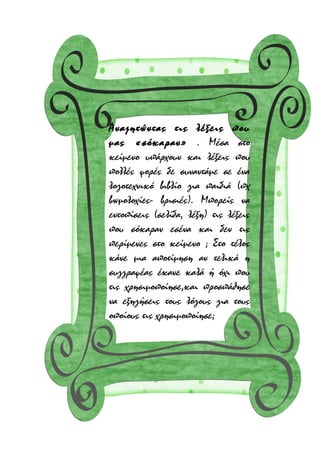 Αναζητώντας τις λέξεις που
μας «σόκαραν» . Μέσα στο
κείμενο υπάρχουν και λέξεις που
πολλές φορές δε συναντάμε σε ένα
λογοτεχνικό βιβλίο για παιδιά (πχ
βωμολοχίες- βρισιές). Μπορείς να
εντοπίσεις (σελίδα, λέξη) τις λέξεις
που σόκαραν εσένα και δεν τις
περίμενες στο κείμενο ; Στο τέλος
κάνε μια αποτίμηση αν τελικά η
συγγραφέας έκανε καλά ή όχι που
τις χρησιμοποίησε,και προσπάθησε
να εξηγήσεις τους λόγους για τους
οποίους τις χρησιμοποίησε;